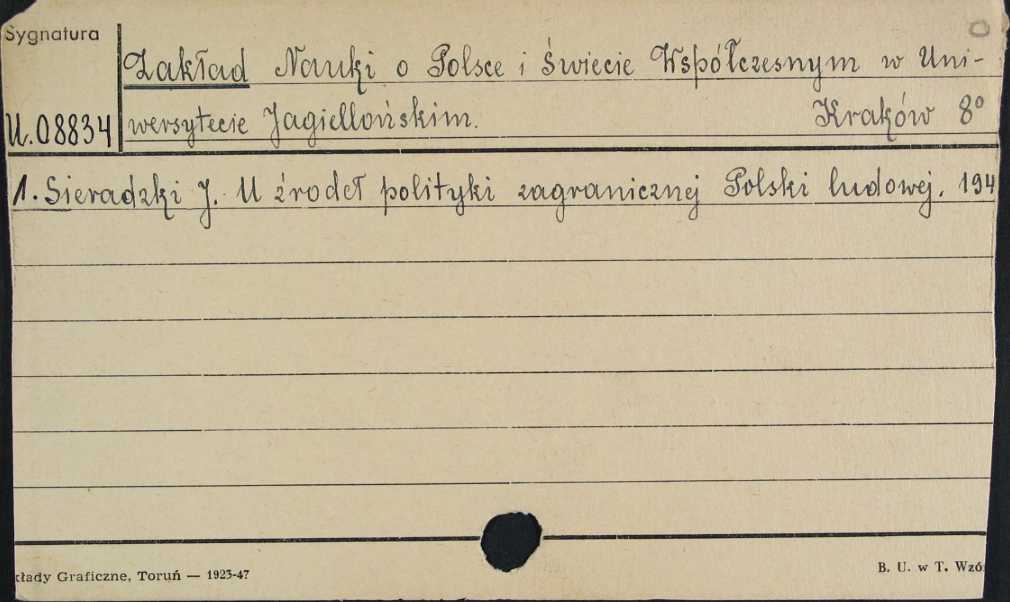 Sygnatura
Zakład Nauki o Polsce i Świecie Współczesnym w Uni-
U.08834 wersytecie Jagiellońskim. Kraków 8°
1. Sieradzki J. U źrodeł polityki zagranicznej Polski ludowej. 194
kłady Graficzne, Toruń — 1923-47 B. U. w T. Wzó